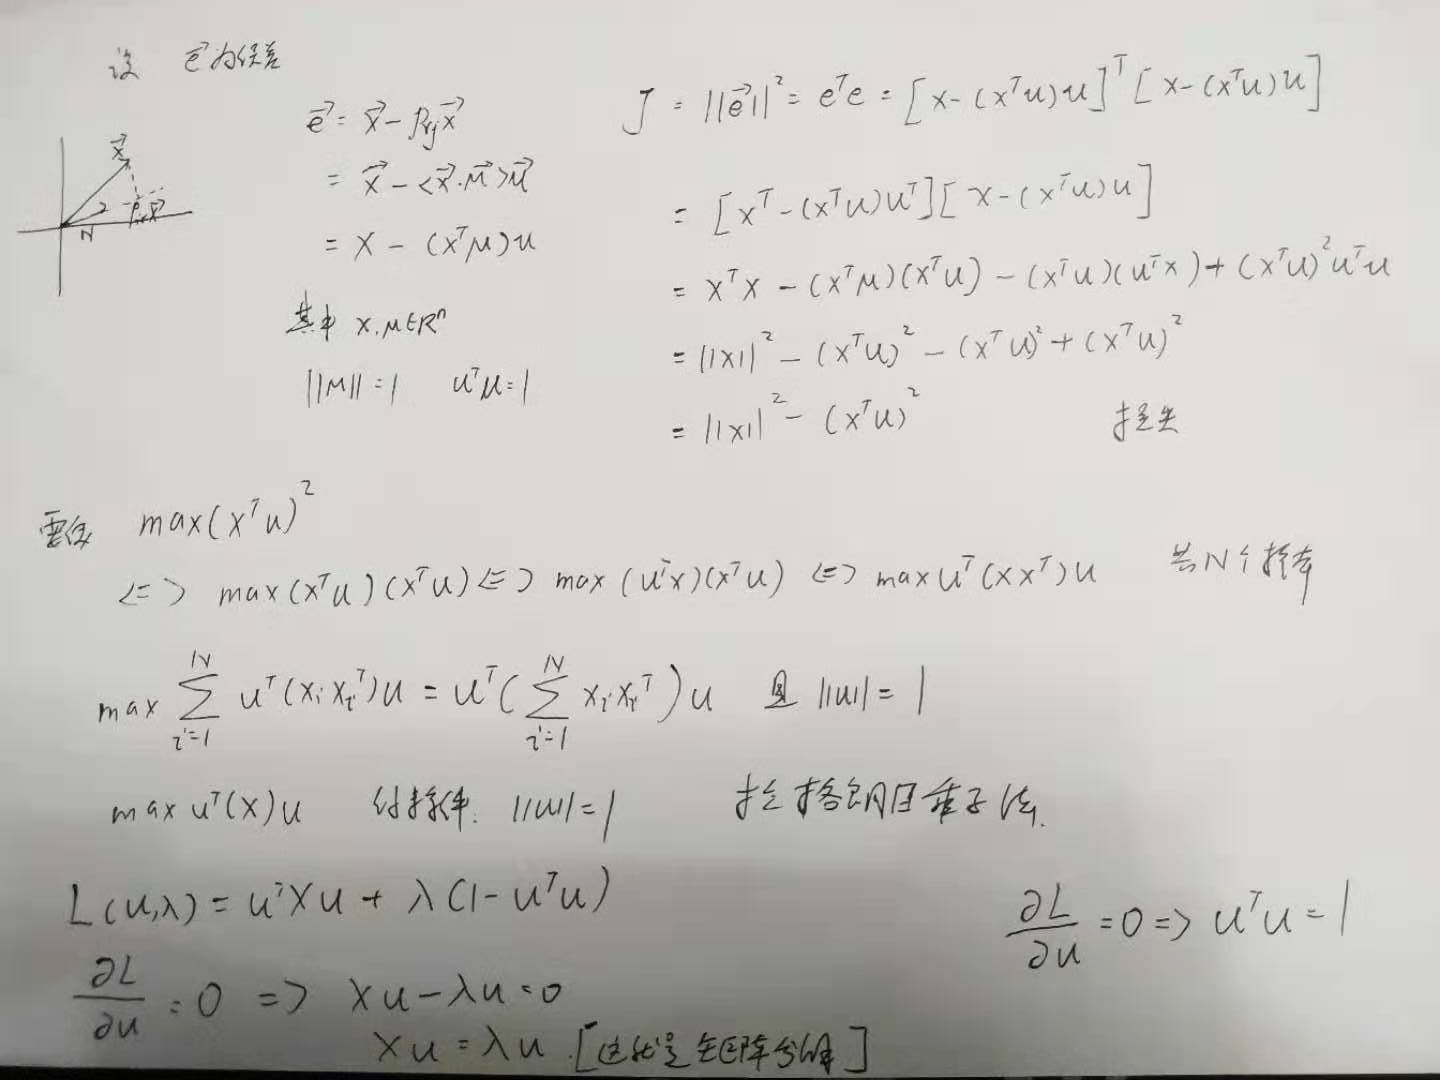 设 e⃗为误差
e⃗ = x⃗ - Prj x⃗
= x⃗ - <x⃗.μ⃗>μ⃗
= x - (xᵀμ)u
其中 x.μ∈Rⁿ
||μ|| = 1 uᵀμ = 1
x⃗
N
J = ||e⃗||² = eᵀe = [x-(xᵀu)u]ᵀ[x-(xᵀu)u]
= [xᵀ-(xᵀu)uᵀ][x-(xᵀu)u]
= xᵀx - (xᵀμ)(xᵀu) - (xᵀu)(uᵀx) + (xᵀu)²uᵀu
= ||x||² - (xᵀu)² - (xᵀu)² + (xᵀu)²
= ||x||² - (xᵀu)²
max(xᵀu)²
<=> max(xᵀu)(xᵀu) <=> max(uᵀx)(xᵀu) <=> max uᵀ(xxᵀ)u 共N个样本
max ∑ᵢ₌₁ᴺ uᵀ(xᵢxᵢᵀ)u = uᵀ(∑ᵢ₌₁ᴺ xᵢxᵢᵀ)u 且 ||u|| = 1
max uᵀ(X)u 约束条件. ||u|| = 1 拉格朗日乘子法.
L(u,λ) = uᵀXu + λ(1-uᵀu)
∂L/∂u = 0 => Xu - λu = 0
Xu = λu.[这就是矩阵分解]
∂L/∂u = 0 => uᵀu = 1